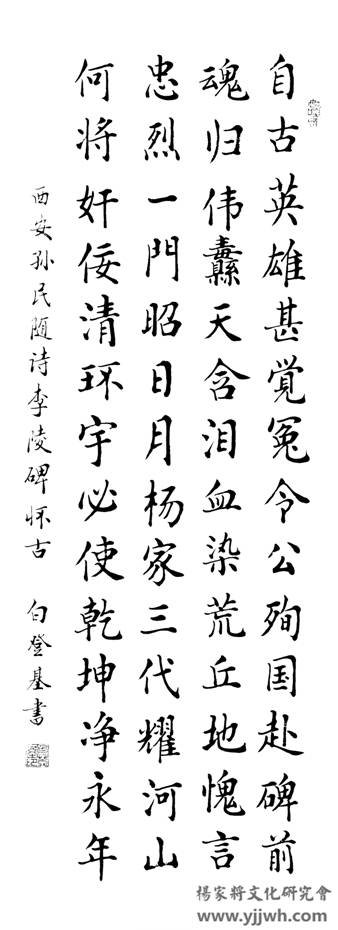 自古英雄甚觉冤令公殉国赴碑前
魂归伟纛天含泪血染荒丘地愧言
忠烈一門昭日月杨家三代耀河山
何将奸佞清环宇必使乾坤净永年
西安孙民随诗李陵碑怀古 白登基書
楊家將文化研究會
www.yjjwh.com